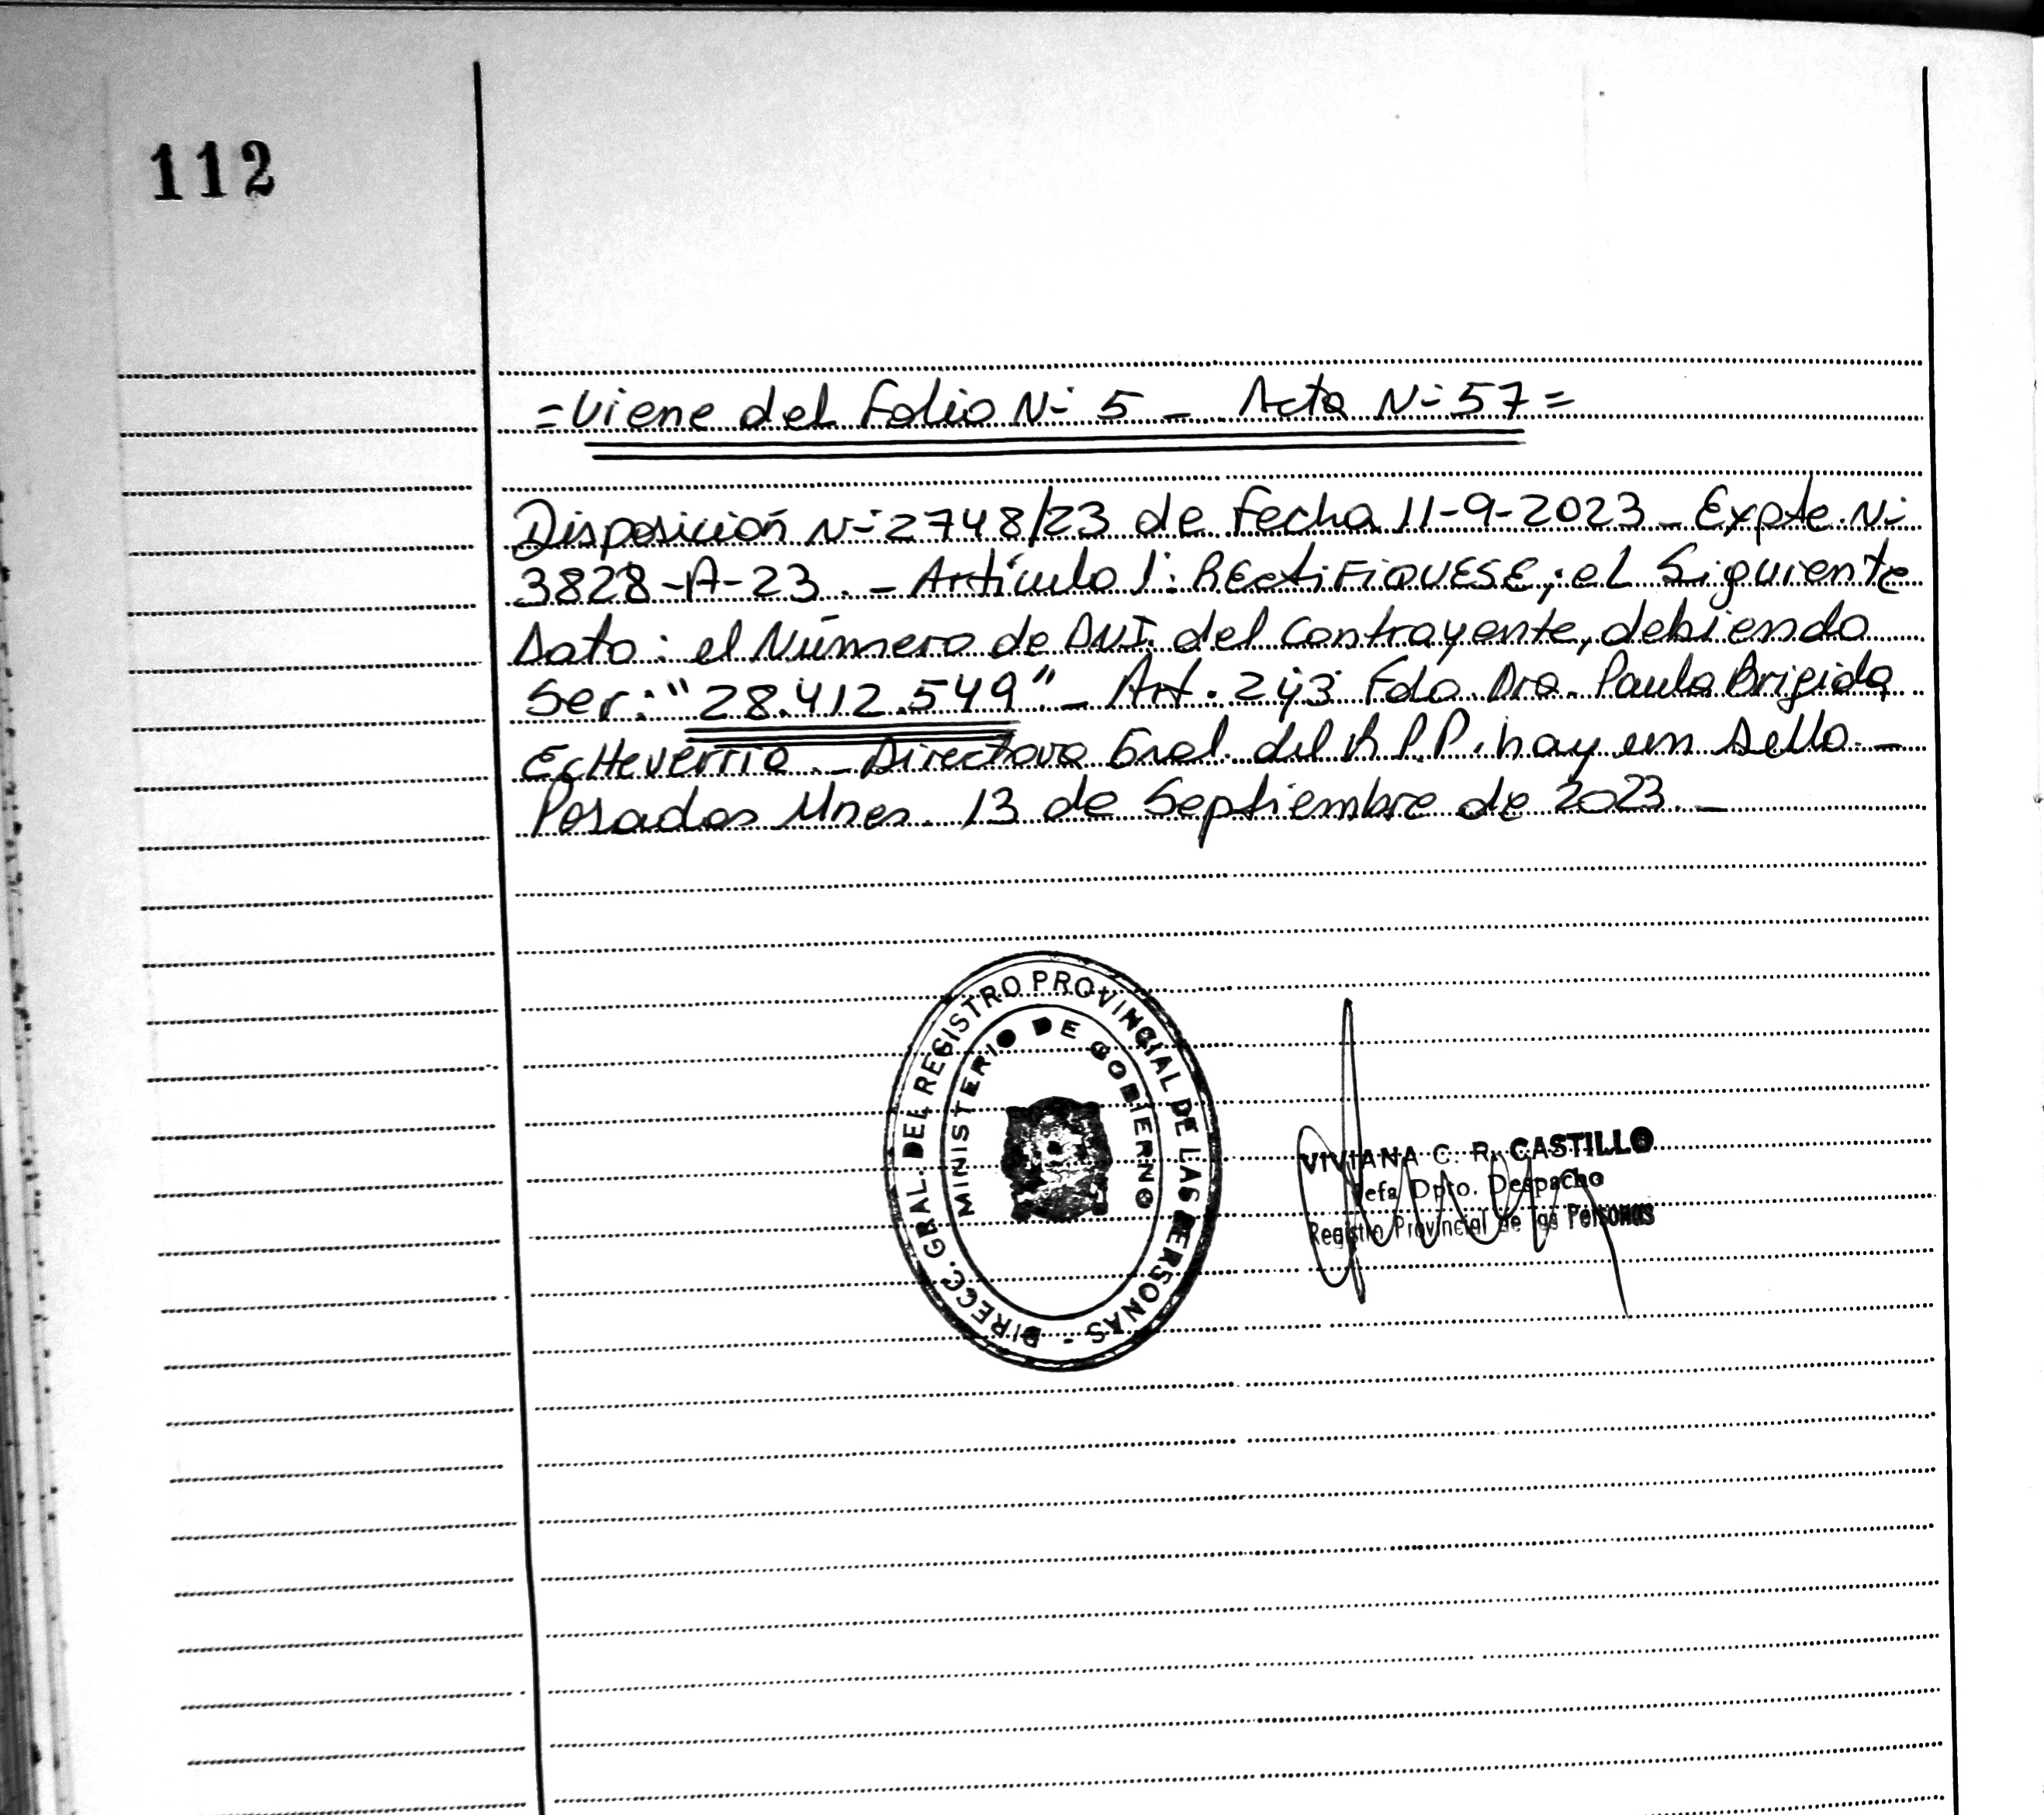 112
=Viene del Folio N- 5 - Acta N- 57=
Disposición N- 2748/23 de Fecha 11-9-2023 - Expte. N-
3828-A-23. - Artículo 1: RECTIFIQUESE, el Siguiente
Dato: el Número de DNI. del Contrayente, debiendo
Ser: "28.412.549" - Art. 2y3 Fdo Dra. Paula Brigida
Echeverria - Directora Gral. del R.P.P. hay un Sello. -
Posadas Mnes. 13 de Septiembre de 2023. -
DIRECC. GRAL. DEL REGISTRO PROVINCIAL DE LAS PERSONAS -
MINISTERIO DE GOBIERNO
VIVIANA C. R. CASTILLO
Jefa Dpto. Despacho
Registro Provincial de las Personas